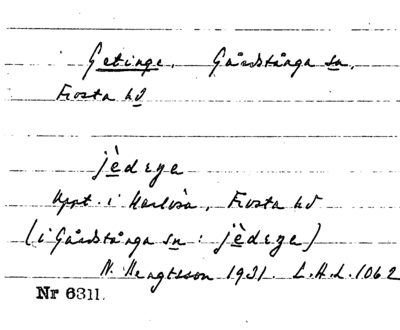 Getinge, Gårdstånga sn,
Frosta hd
jèdeγe
Uppt. i Harlösa, Frosta hd
(i Gårdstånga sn: jèdeγe)
N. Bengtsson 1931. L.H.L. 1062
Nr 6311.